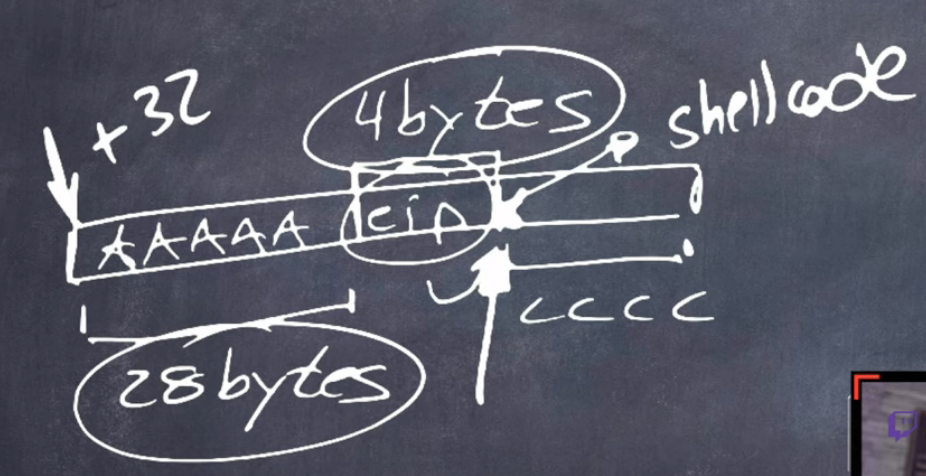 +32
4bytes
shellcode
AAAAA eip
CCCC
28bytes